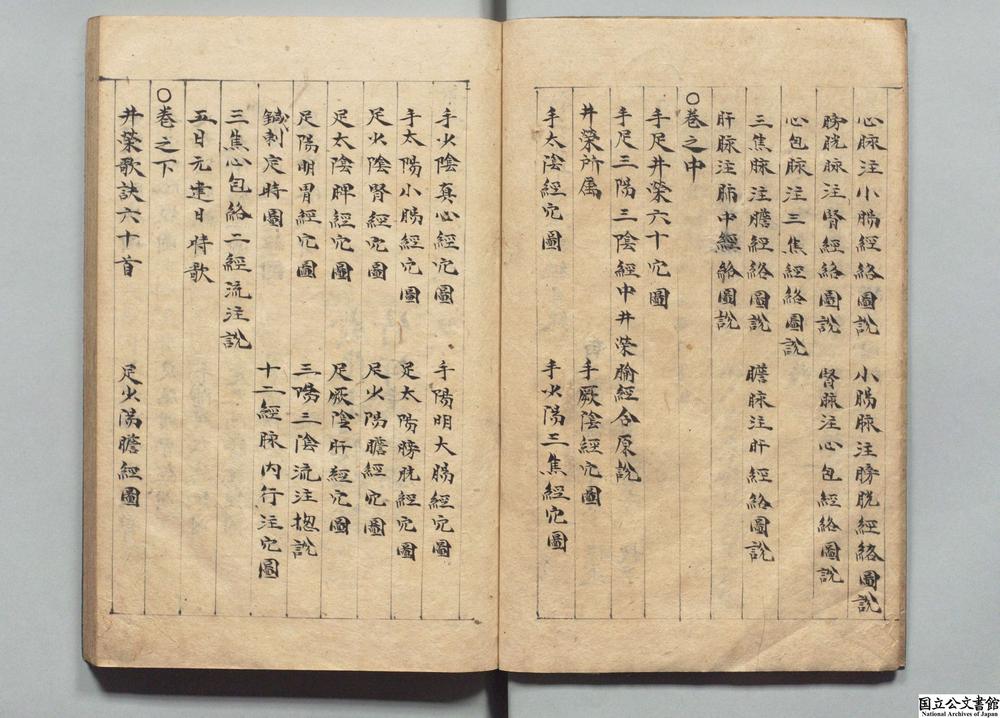 心脉注小腸經絡圖說　小腸脉注膀胱經絡圖說
膀胱脉注腎經絡圖說　腎脉注心包經絡圖說
心包脉注三焦經絡圖說
三焦脉注膽經絡圖說　膽脉注肝經絡圖說
肝脉注肺中經絡圖說
○卷之中
手足井榮六十穴圖
手足三陽三陰經中井榮腧經合原說
井榮所属　手厥陰經穴圖
手太陰經穴圖　手少陽三焦經穴圖
手少陰真心經穴圖　手陽明大腸經穴圖
手太陽小腸經穴圖　足太陽膀胱經穴圖
足少陰腎經穴圖　足少陽膽經穴圖
足太陰脾經穴圖　足厥陰肝經穴圖
足陽明胃經穴圖　三陽三陰流注揔說
鍼刺定時圖　十二經脉內行注穴圖
三焦心包絡二經流注說
五日元建日時歌
○卷之下
井榮歌訣六十首　足少陽膽經圖
国立公文書館
National Archives of Japan